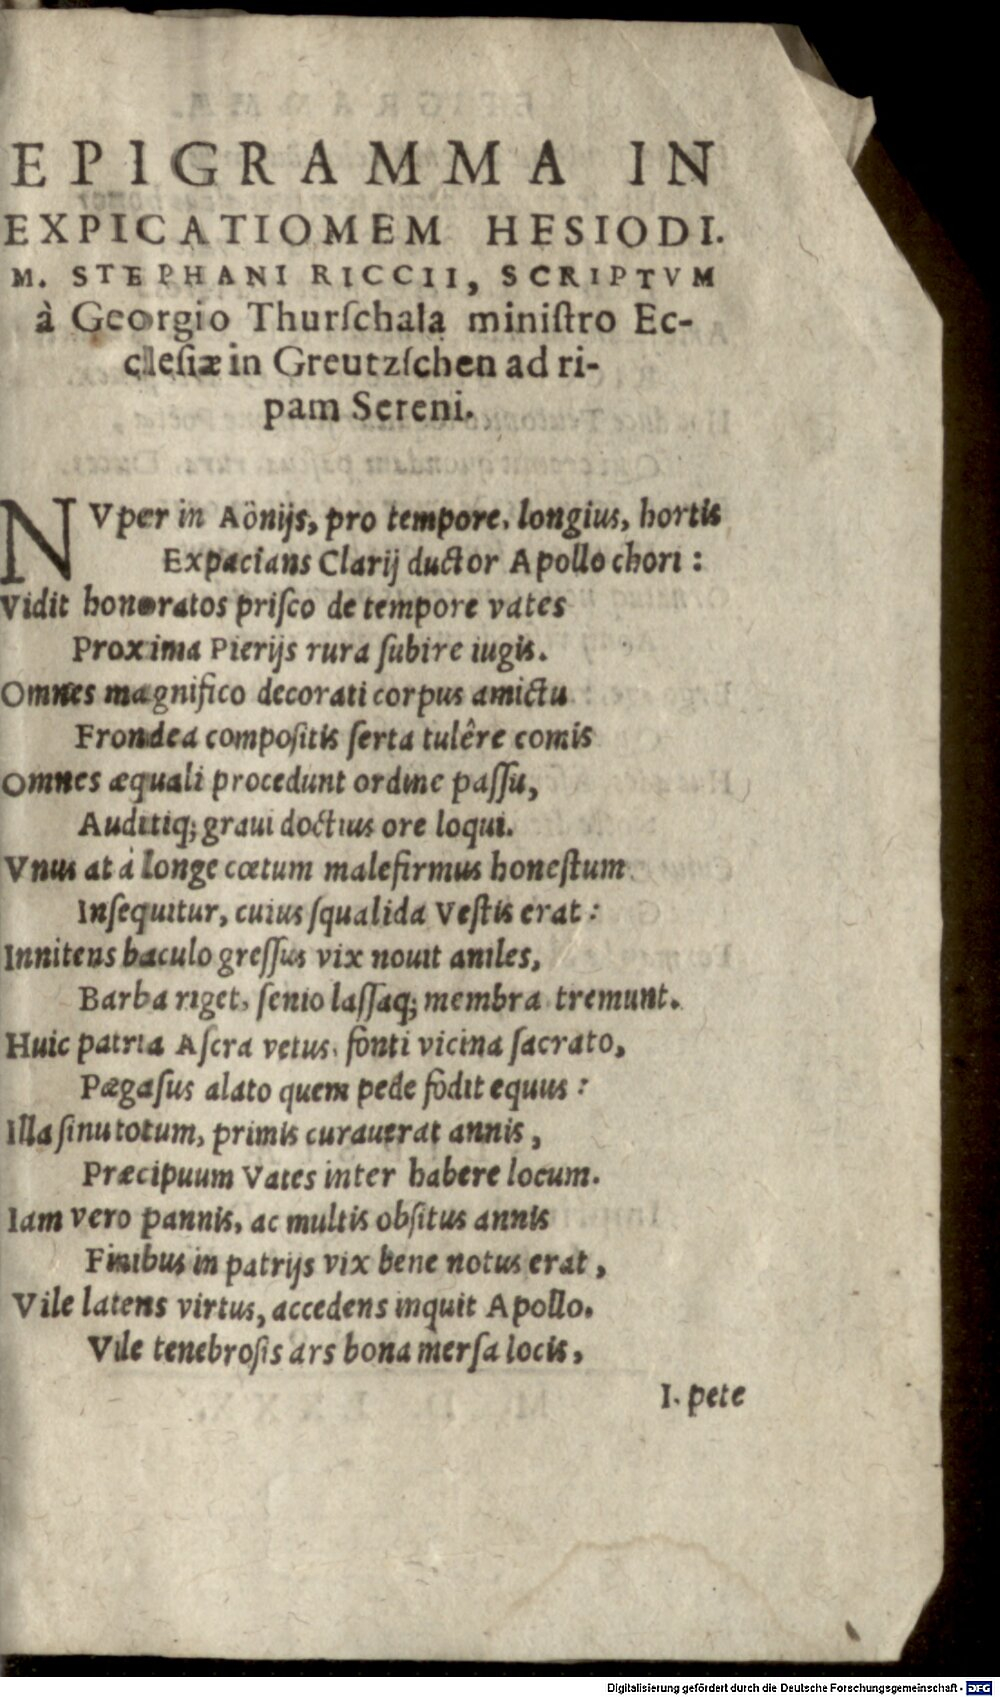 EPIGRAMMA IN
EXPICATIOMEM HESIODI.
M. STEPHANI RICCII, SCRIPTVM
à Georgio Thurſchala miniſtro Ec-
cleſiæ in Greutzſchen ad ri-
pam Sereni.
NVper in Aönijs, pro tempore, longius, hortis
Expacians Clarij ductor Apollo chori:
Vidit honoratos priſco de tempore vates
Proxima Pierijs rura ſubire iugis.
Omnes magnifico decorati corpus amictu
Frondea compoſitis ſerta tulêre comis
Omnes æquali procedunt ordine paſſu,
Auditiq; graui doctius ore loqui.
Vnus at à longe cœtum malefirmus honeſtum
Inſequitur, cuius ſqualida Veſtis erat:
Innitens baculo greſſus vix nouit aniles,
Barba riget, ſenio laſſaq; membra tremunt.
Huic patria Aſcra vetus, fonti vicina ſacrato,
Pægaſus alato quem pede fôdit equus:
Illa ſinu totum, primis curauerat annis,
Præcipuum Vates inter habere locum.
Iam vero pannis, ac multis obſitus annis
Finibus in patrijs vix bene notus erat,
Vile latens virtus, accedens inquit Apollo.
Vile tenebroſis ars bona merſa locis,
I. pete
Digitalisierung gefördert durch die Deutsche Forschungsgemeinschaft - DFG